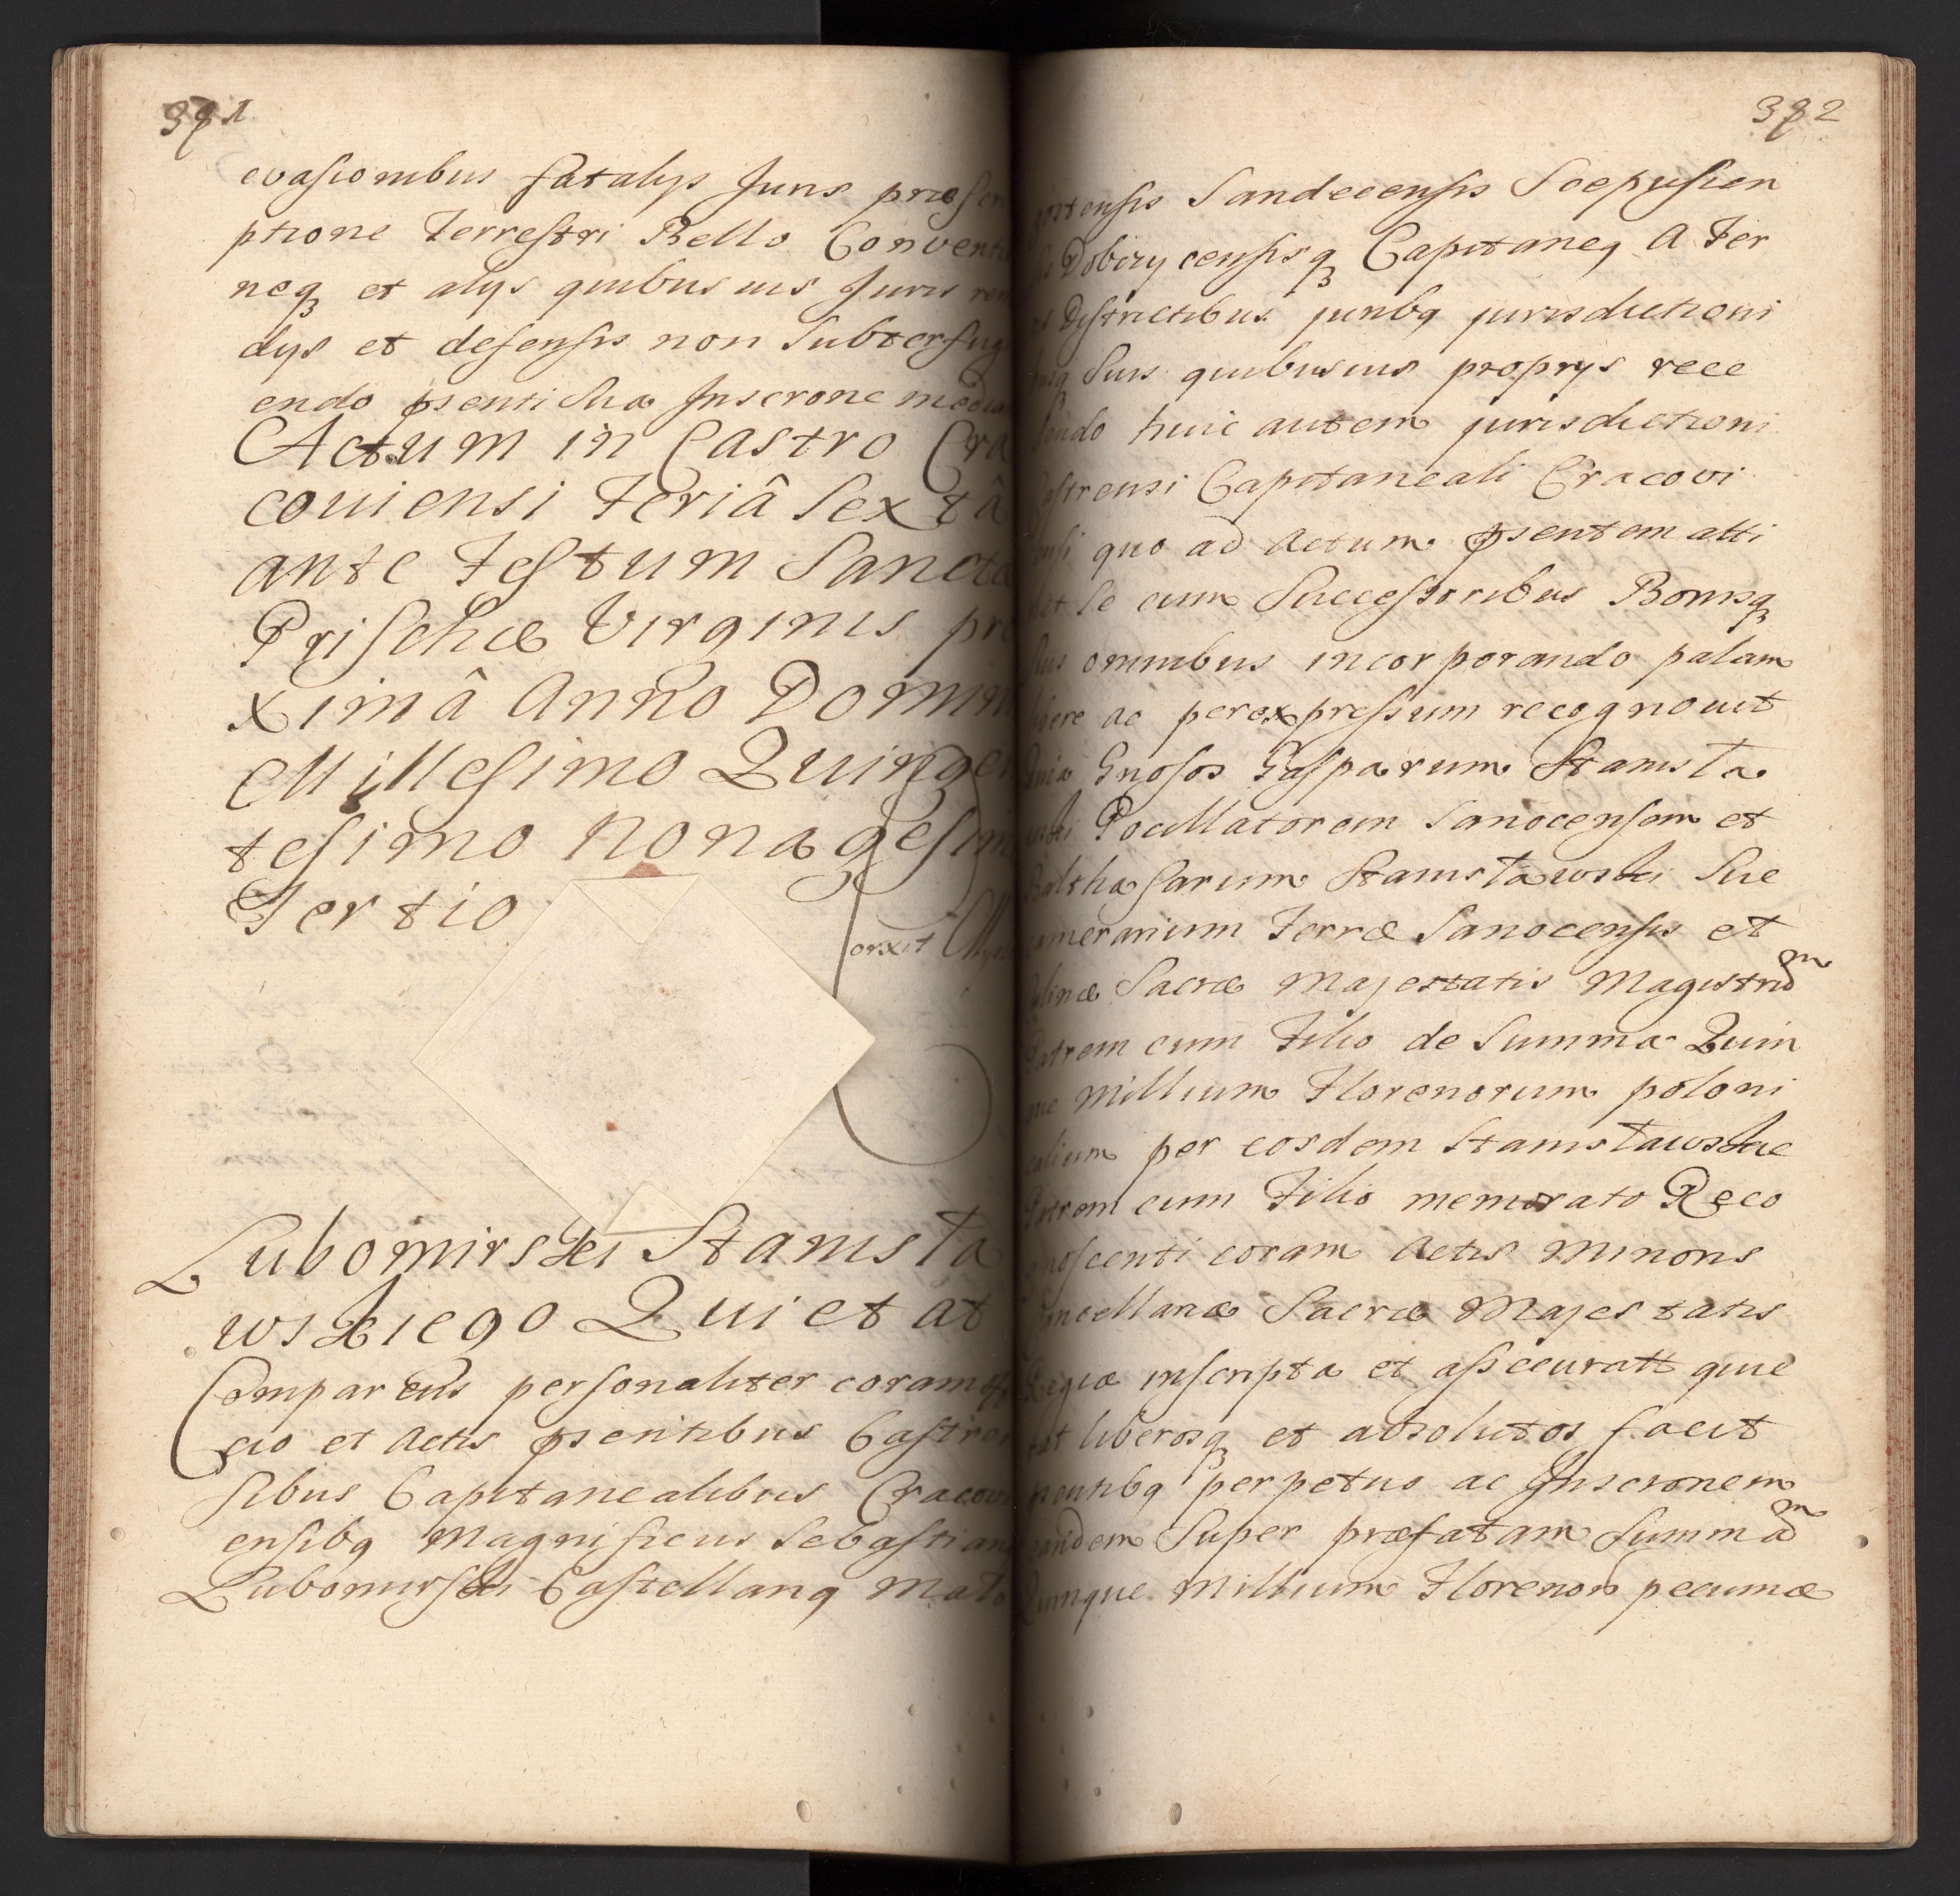 371
evasionibus fatalys Juris præscri
ptione Terrestri Bello Convent
neq et alys quibusuis Juris rem
dys et defensis non Subterfug
endo psenti Sua Inscrone media
Actum in Castro Cra
couiensi Feriâ Sextâ
ante Festum Sanctæ
Prischæ Virginis pro
ximâ Anno Domini
Millesimo Quinge
tesimo Nonagesim
Tertio
orxit
Lubomirski Stanisła
wskiego Quietat
Comparens personaliter coram offi
cio et Actis psentibus Castren
sibus Capitanealibus Cracovi
ensibq Magnificus Sebastianq
Lubomirski Castellanq Mało
372
Sandecensis Scepusien
Dobczycensisq Capitaneq A Ter
Districtibus junbq jurisdictioni
Suis quibusuis proprys rece
dendo huic autem jurisdictioni
Castrensi Capitaneali Cracovi
ensi quo ad Actum psentem atti
net Se cum Successoribus Bonisq
Suis omnibus incorporando palam
libere ac per expressum recognouit
Quia Gnosos Gasparum Stanisła
wski Pocillatorem Sanocensem et
Balthasarum Stanisławski Suc
camerarium Terræ Sanocensis et
Culinæ Sacræ Majestatis Magistrum
Patrem cum Filio de Summa Quin
que Millium Florenorum poloni
calium per eosdem Stanisławskie
Patrem cum Filio memorato Reco
gnoscenti coram Actis Minoris
Cancellariæ Sacræ Majestatis
Regiæ inscripta et assecuratt quie
tat liberosq et absolutos facit
psentibq perpetuo ac Inscronem
eandem Super præfatam Summam
Quinque Millium Florenor pecuniæ